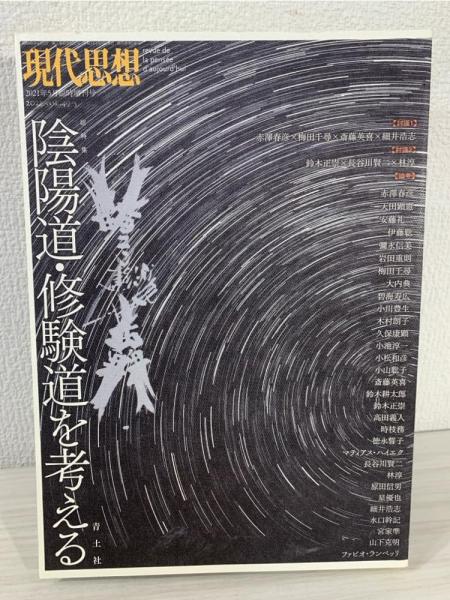 現代思想
revue de
la pensée
d'aujourd'hui
2021年5月臨時増刊号
総特集
陰陽道・修験道を考える
青土社
【討議1】
赤澤春彦×梅田千尋×斎藤英喜×細井浩志
【討議2】
鈴木正崇×長谷川賢二×林淳
【論考】
赤澤春彦
天田顕徳
安藤礼二
伊藤聡
彌永信美
岩田重則
梅田千尋
大内典
碧海寿広
小川豊生
木村朗子
久保康顕
小池淳一
小松和彦
小山聡子
斎藤英喜
鈴木耕太郎
鈴木正崇
高田義人
時枝務
徳永誓子
マティアス・ハイエク
長谷川賢二
林淳
原田信男
星優也
細井浩志
水口幹記
宮家準
山下克明
ファビオ・ランベッリ